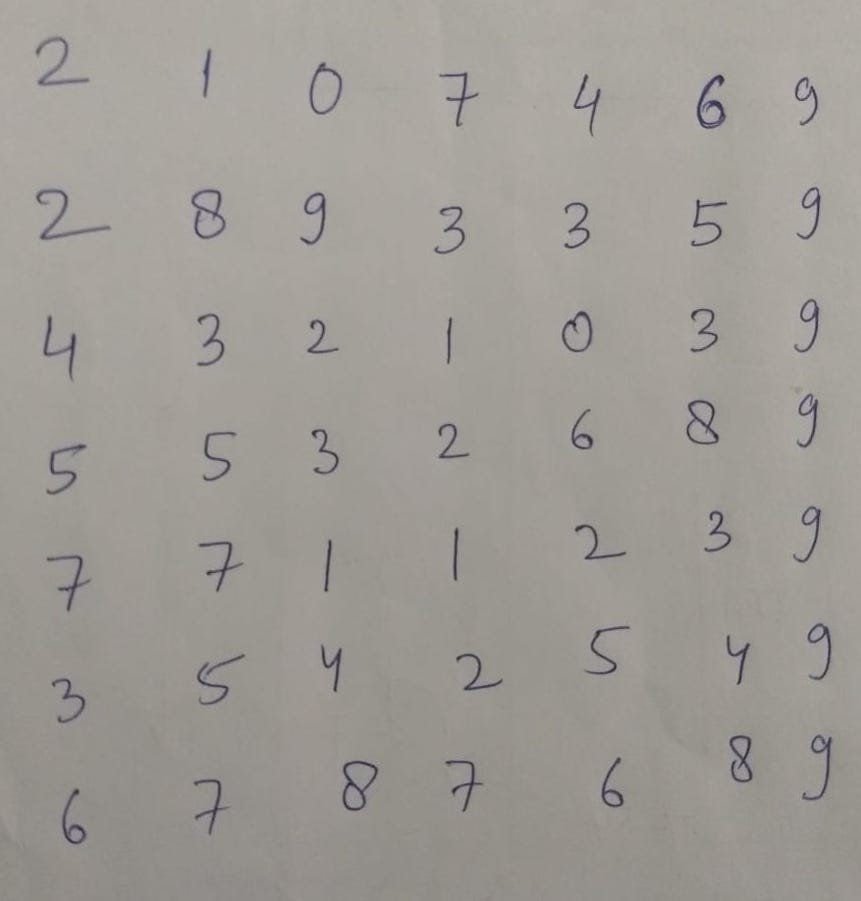 2 1 0 7 4 6 9
2 8 9 3 3 5 9
4 3 2 1 0 3 9
5 5 3 2 6 8 9
7 7 1 1 2 3 9
3 5 4 2 5 4 9
6 7 8 7 6 8 9